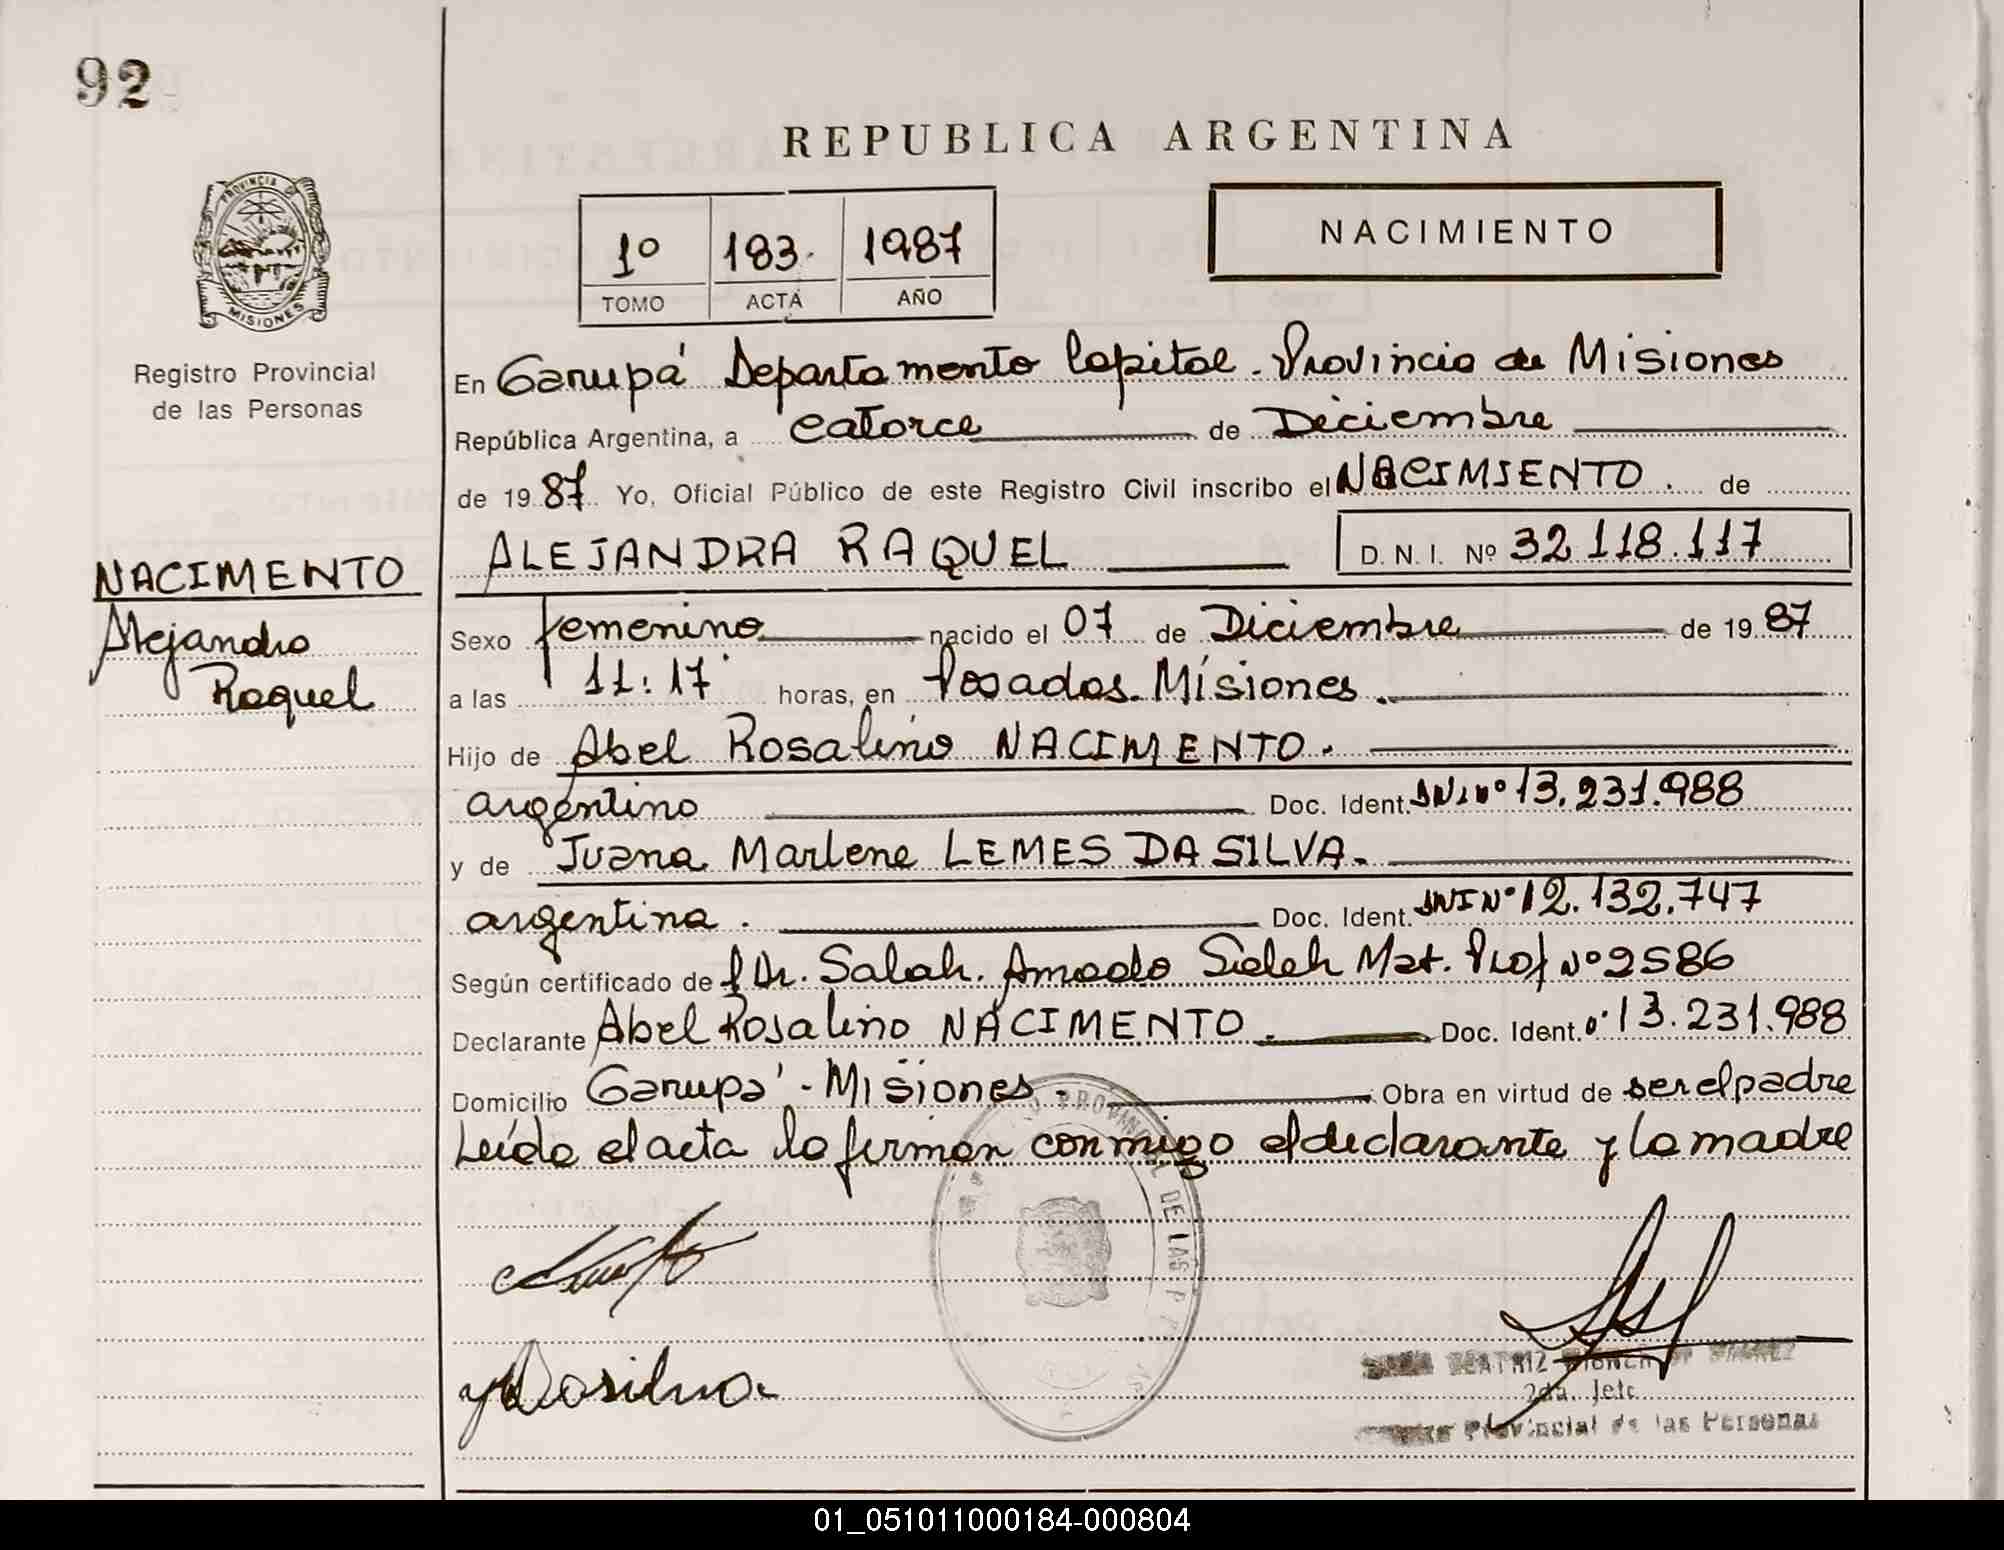 92
REPUBLICA ARGENTINA
PROVINCIA DE
MISIONES
Registro Provincial
de las Personas
1º 183. 1987
TOMO ACTA AÑO
NACIMIENTO
En Garupá Departamento Capital. Provincia de Misiones
República Argentina, a catorce de Diciembre
de 1987 Yo, Oficial Público de este Registro Civil inscribo el NACIMIENTO. de
ALEJANDRA RAQUEL D. N. I. Nº 32.118.117
NACIMENTO
Alejandra
Raquel
Sexo femenino nacido el 07 de Diciembre de 1987
a las 11:17 horas, en Posadas. Misiones.
Hijo de Abel Rosalino NACIMENTO.
argentino Doc. Ident. DNI Nº 13.231.988
y de Juana Marlene LEMES DA SILVA.
argentina. Doc. Ident. DNI Nº 12.132.747
Según certificado de Dr. Salah. Amado Mat. Prof Nº 2586
Declarante Abel Rosalino NACIMENTO. Doc. Ident. 13.231.988
Domicilio Garupá - Misiones. Obra en virtud de ser el padre
Leída el acta la firman conmigo el declarante y la madre
PROVINCIAL DE LAS
BEATRIZ
2da. Jefe
Provincial de las Personas
01_051011000184-000804